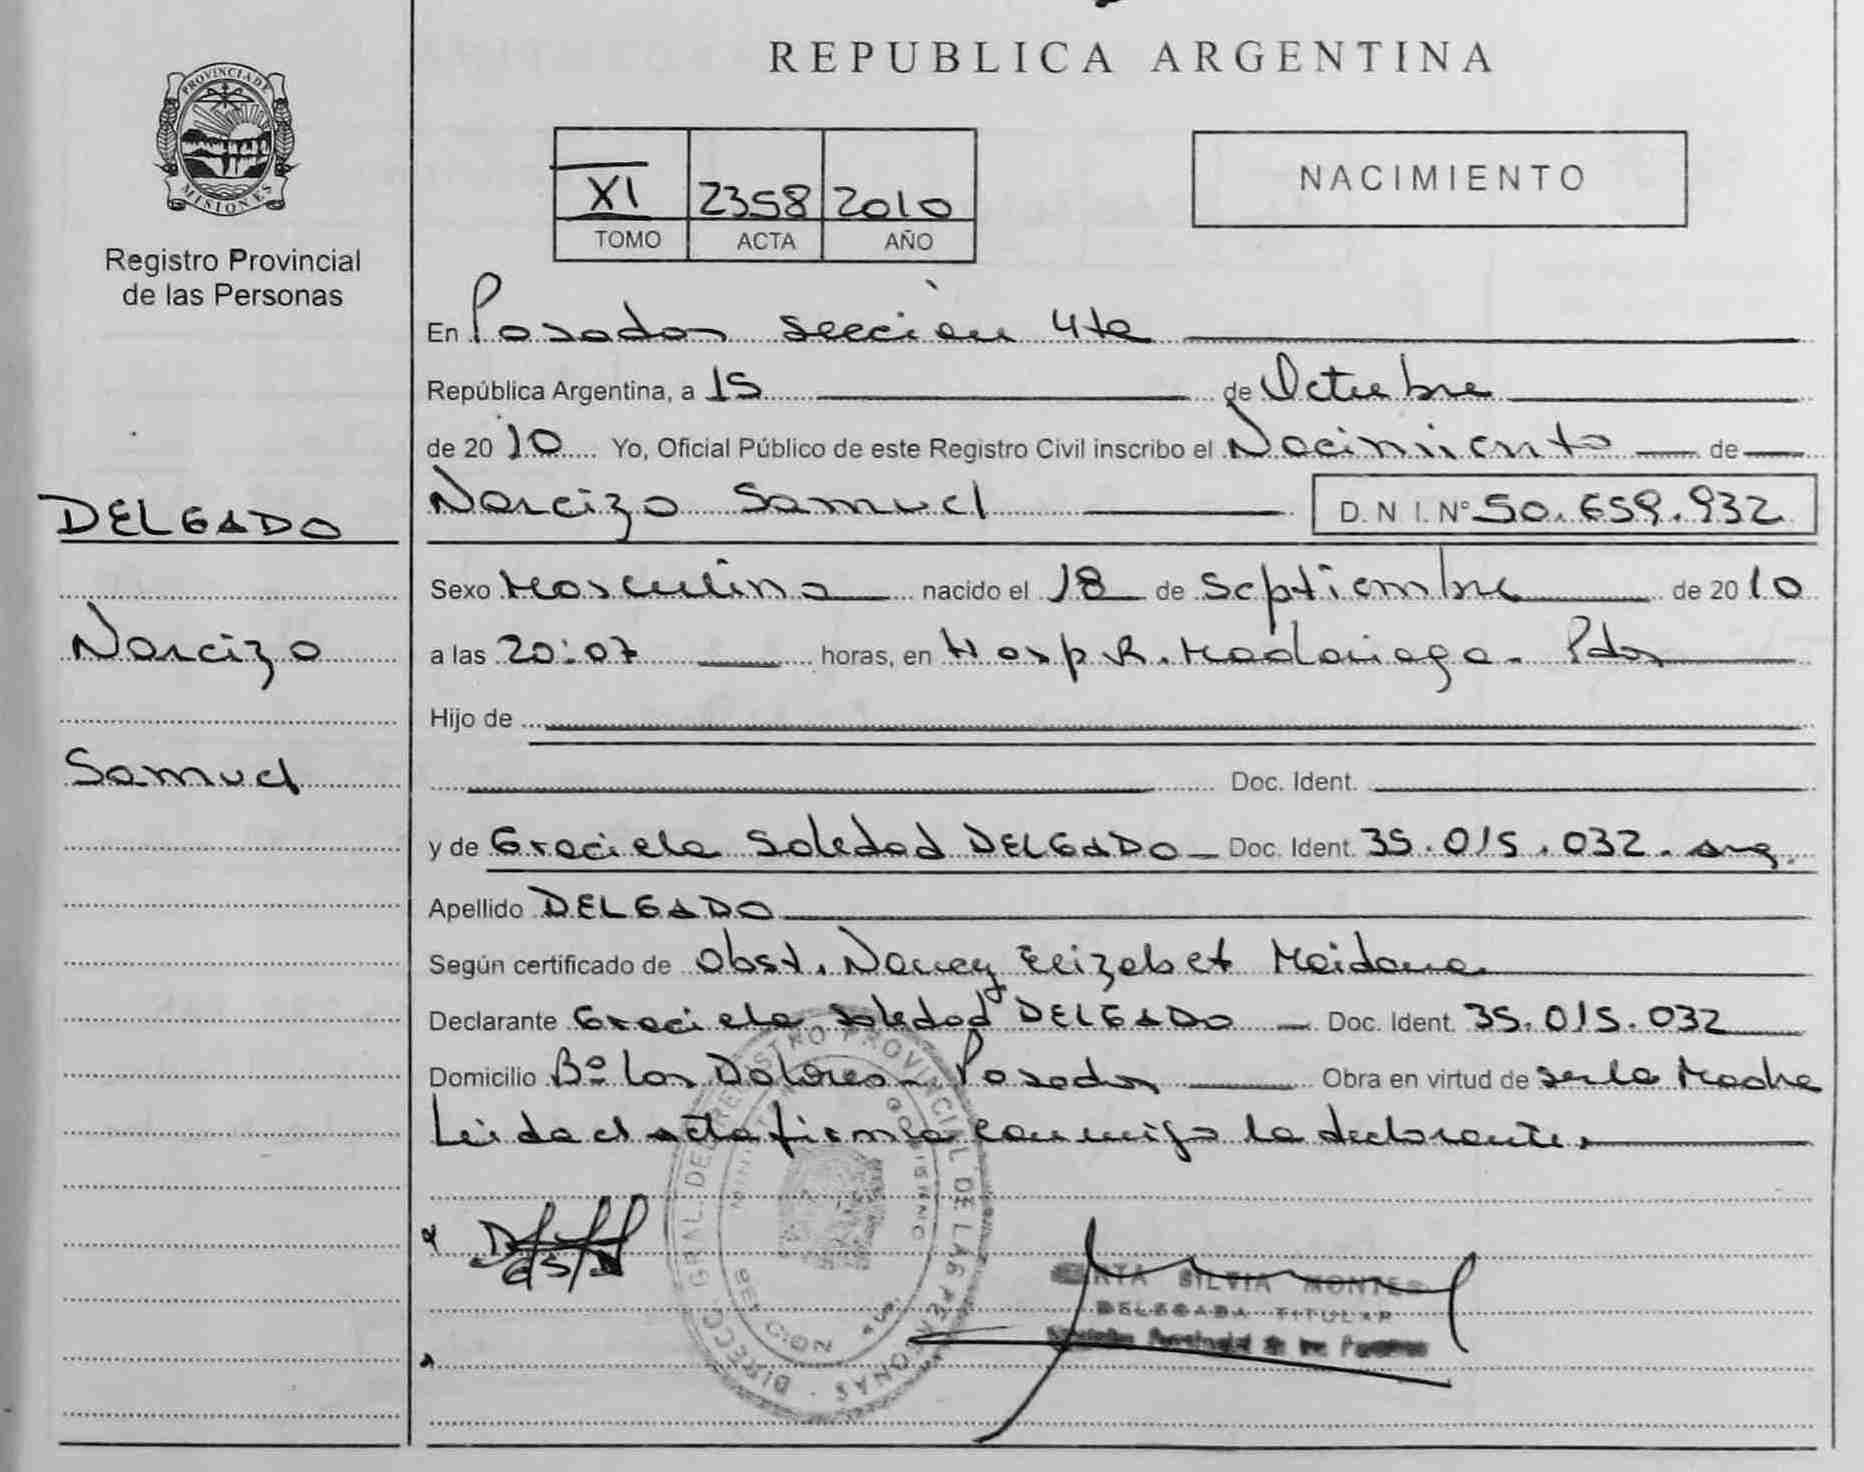 PROVINCIA DE
MISIONES
Registro Provincial
de las Personas
DELGADO
Narcizo
Samuel
REPUBLICA ARGENTINA
XI 2358 2010
TOMO ACTA AÑO
NACIMIENTO
En Posadas sección 4ta
República Argentina, a 15 de Octubre
de 2010 Yo, Oficial Público de este Registro Civil inscribo el Nacimiento de
Narcizo Samuel D.N.I. Nº 50.659.932
Sexo Masculino nacido el 18 de Septiembre de 2010
a las 20:07 horas, en Hosp R. Madariaga - Pdas
Hijo de
Doc. Ident.
y de Graciela Soledad DELGADO - Doc. Ident. 35.015.032. arg.
Apellido DELGADO
Según certificado de Obst. Nancy Elizabet Maidana
Declarante Graciela Soledad DELGADO - Doc. Ident. 35.015.032
Domicilio Bº Los Dolores - Posadas Obra en virtud de ser la Madre
Leida el acta firma conmigo la declarante.
DIRECC. GRAL. DEL REGISTRO PROVINCIAL DE LAS PERSONAS
SILVIA MONTES
DELEGADA TITULAR
Provincial de las Personas